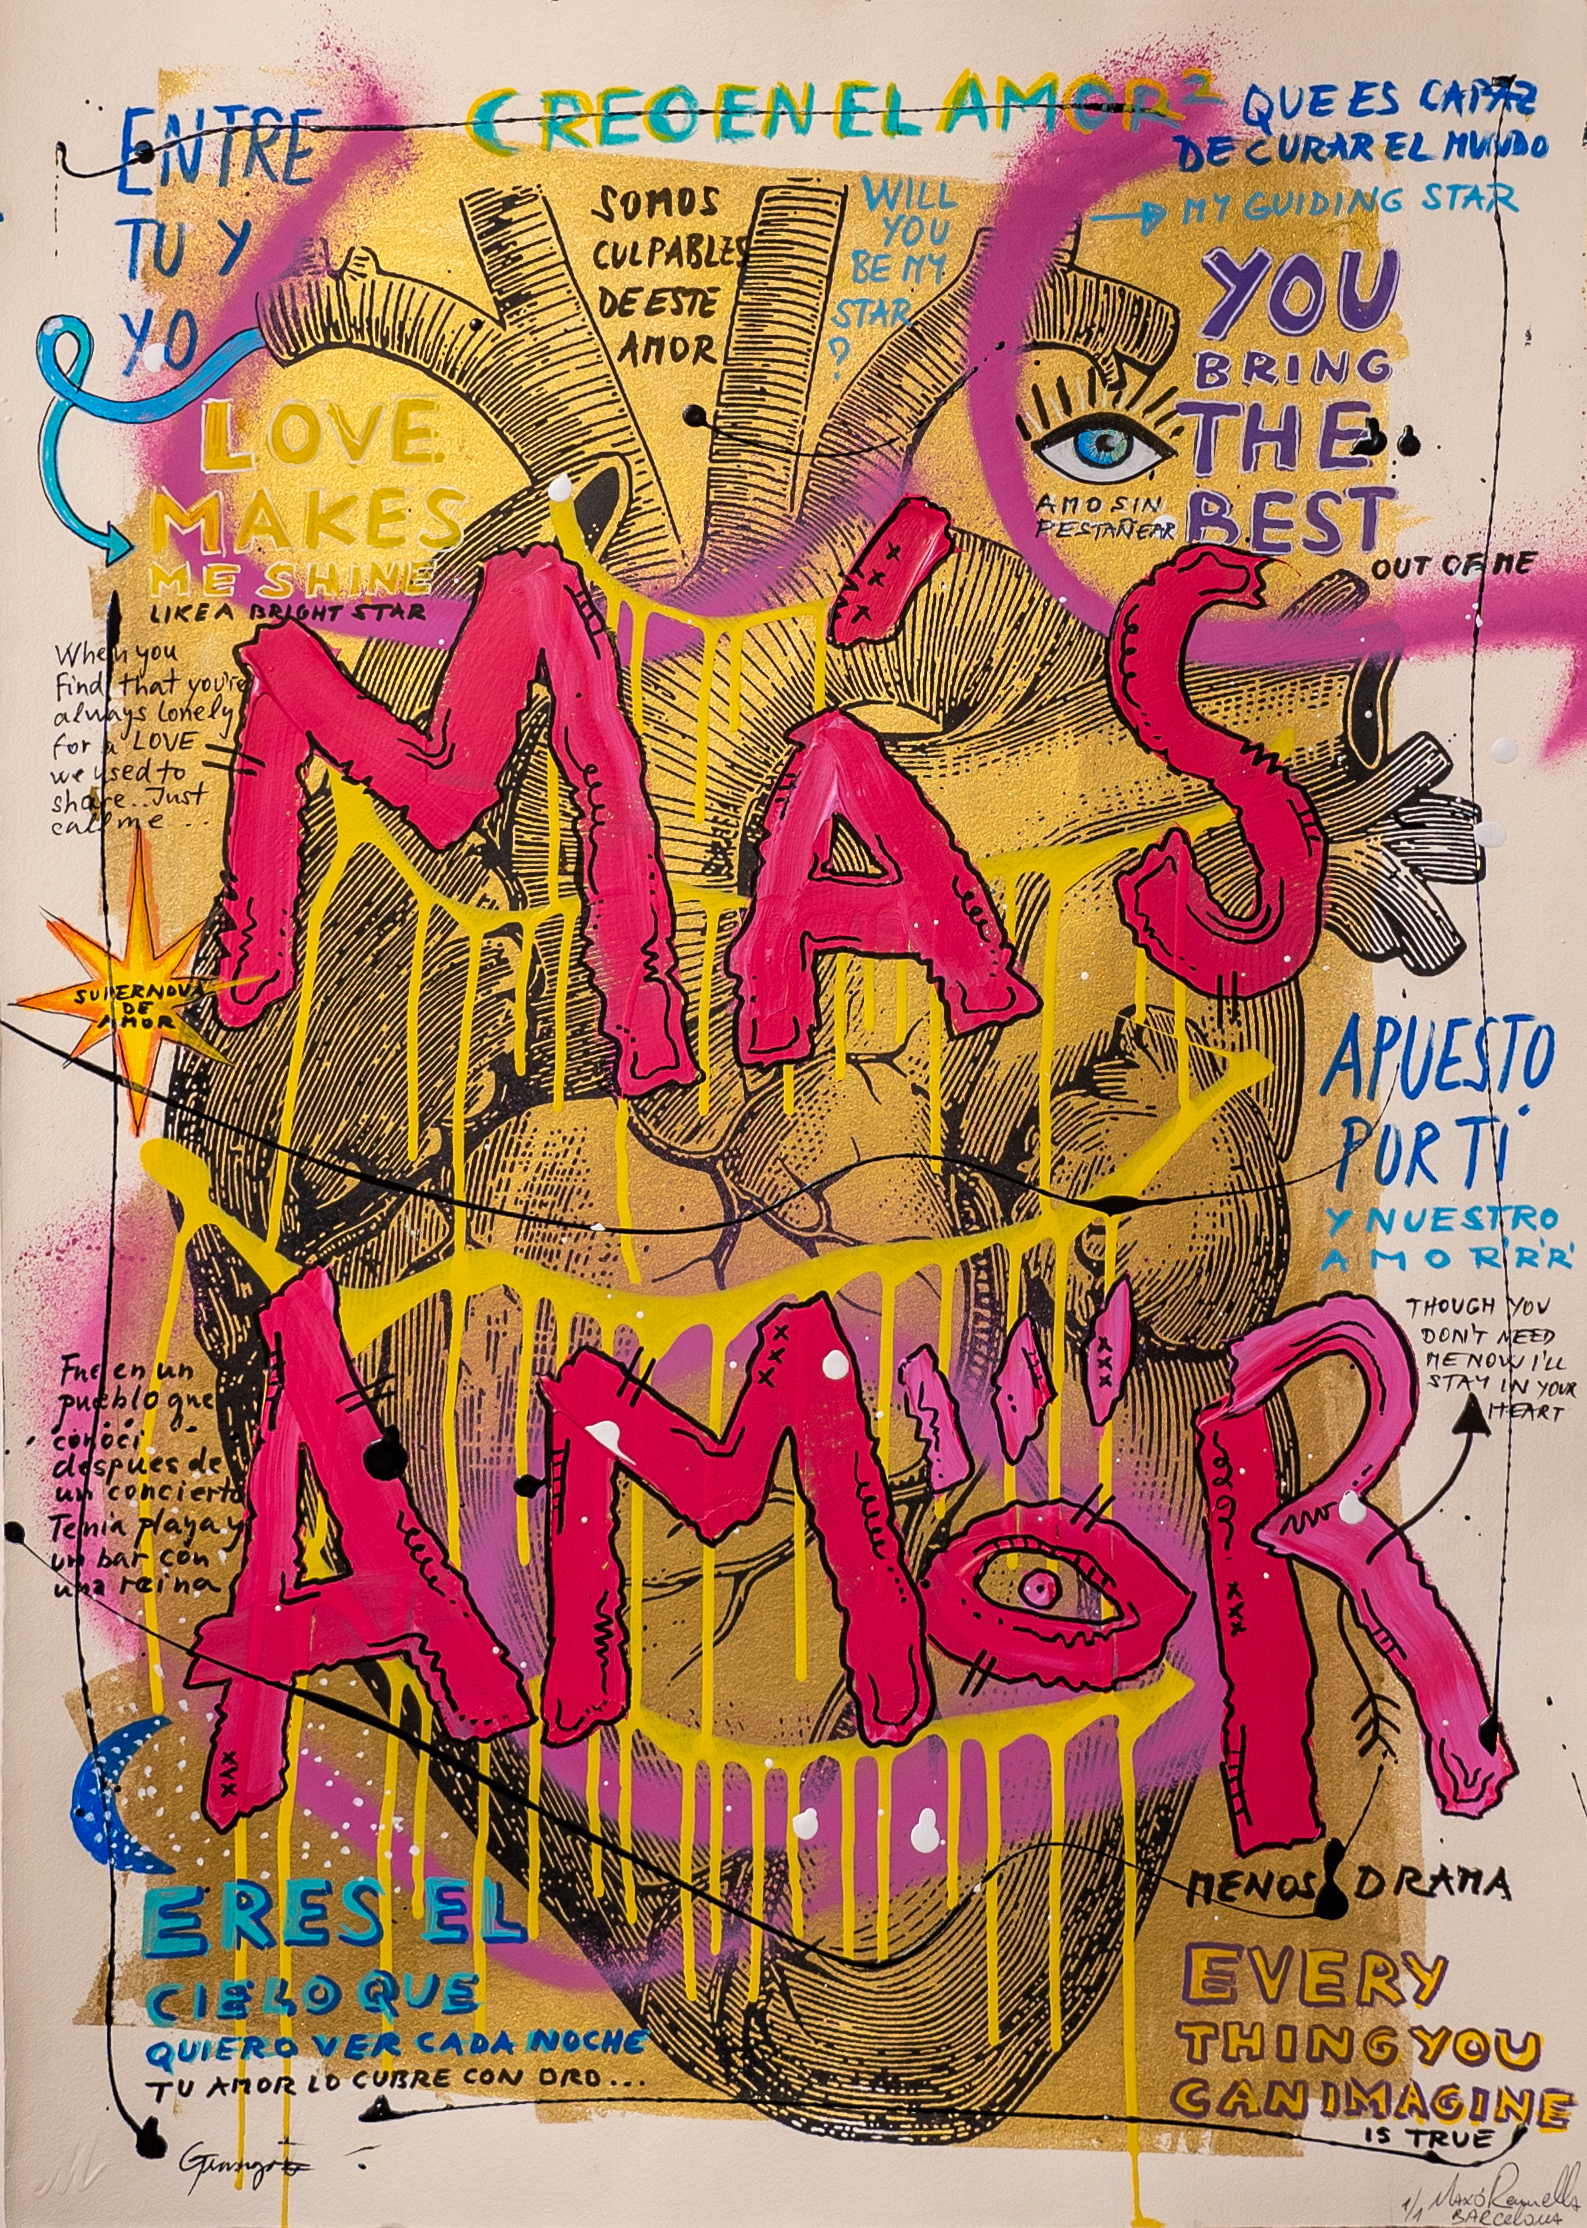 CREO EN EL AMOR²
QUE ES CAPAZ
DE CURAR EL MUNDO
MY GUIDING STAR
ENTRE
TU Y
YO
SOMOS
CULPABLES
DE ESTE
AMOR
WILL
YOU
BE MY
STAR
?
YOU
BRING
THE
BEST
OUT OF ME
AMO SIN
PESTAÑEAR
LOVE
MAKES
ME SHINE
LIKE A BRIGHT STAR
When you
Find that you're
always lonely
for a LOVE
we used to
share.. Just
call me...
MÁS
SUPERNOVA
DE
AMOR
APUESTO
POR TI
Y NUESTRO
AMOR'R'R'
AMOR
THOUGH YOU
DON'T NEED
ME NOW I'LL
STAY IN YOUR
HEART
Fue en un
pueblo que
conoci
despues de
un concierto
Tenia playa y
un bar con
una reina
MENOS DRAMA
ERES EL
CIELO QUE
QUIERO VER CADA NOCHE
TU AMOR LO CUBRE CON ORO...
EVERY
THING YOU
CAN IMAGINE
IS TRUE
1/1 Maxó Rennella
BARCELONA